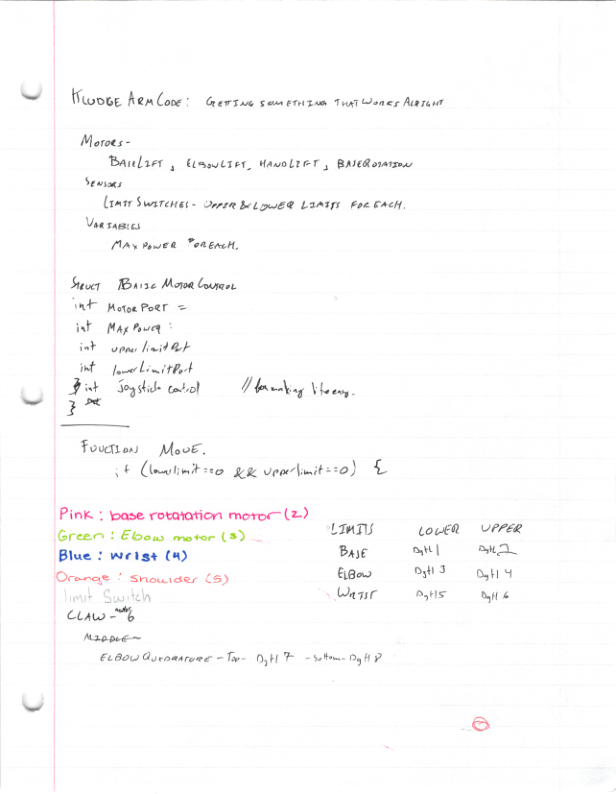 KLUDGE ARM CODE: GETTING SOMETHING THAT WORKS ALRIGHT
MOTORS-
BASELIFT, ELBOWLIFT, HANDLIFT, BASEROTATION
SENSORS
LIMIT SWITCHES- UPPER & LOWER LIMITS FOR EACH.
VARIABLES
MAX POWER FOR EACH.
STRUCT BASIC MOTOR CONTROL
int MOTOR PORT =
int MAX POWER :
int upperlimitPort
int lowerLimitPort
} int Joystick control // for making life easy.
}
FUNCTION MOVE.
if (lowerlimit==0 && upperlimit==0) {
Pink: base rotatation motor (2)
Green: Elbow motor (3)
Blue: wrist (4)
Orange: Shoulder (5)
limit Switch
CLAW - 6
MIDDLE-
ELBOW QUADRATURE - Top- Dgtl 7 - Bottom- Dgtl 8
LIMITS LOWER UPPER
BASE Dgtl 1 Dgtl 2
ELBOW Dgtl 3 Dgtl 4
WRIST Dgtl 5 Dgtl 6